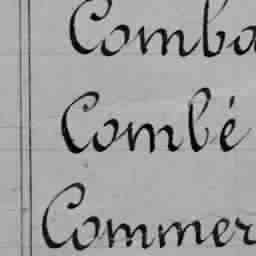 Comba
Combé
Commer